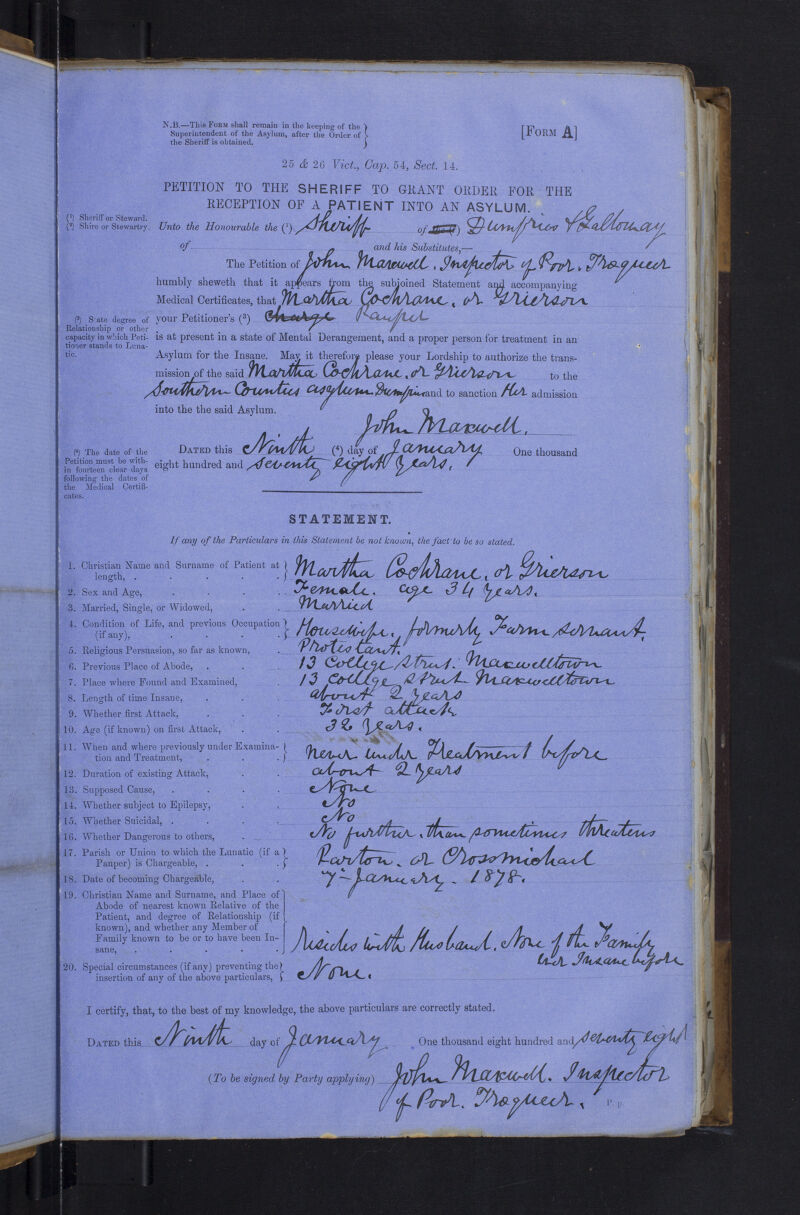 N.B.—This Form shall remain in the keeping of the
Superintendent of the Asylum, after the Order of
the Sheriff is obtained.
[Form A]
25 & 26 Vict., Cap. 54, Sect. 14.
PETITION TO THE SHERIFF TO GRANT ORDER FOR THE
RECEPTION OF A PATIENT INTO AN ASYLUM.
(¹) Sheriff or Steward.
(²) Shire or Stewartry.
Unto the Honourable the (¹) Sheriff of Dumfries & Galloway
of and his Substitutes,—
The Petition of John Maxwell. Inspector of Poor. Troqueer
humbly sheweth that it appears from the subjoined Statement and accompanying
Medical Certificates, that Martha Cochrane, or Grierson
(³) State degree of
Relationship or other
capacity in which Peti-
tioner stands to Luna-
tic.
your Petitioner's (³) charge Pauper
is at present in a state of Mental Derangement, and a proper person for treatment in an
Asylum for the Insane. May it therefore please your Lordship to authorize the trans-
mission of the said Martha Cochrane, or Grierson to the
Southern Counties asylum Dumfries and to sanction Her admission
into the the said Asylum.
John Maxwell.
(⁴) The date of the
Petition must be with-
in fourteen clear days
following the dates of
the Medical Certifi-
cates.
Dated this Ninth (⁴) day of January One thousand
eight hundred and seventy eight Years.
STATEMENT.
If any of the Particulars in this Statement be not known, the fact to be so stated.
1. Christian Name and Surname of Patient at
length, Martha Cochrane, or Grierson
2. Sex and Age, Female. age 34 Years.
3. Married, Single, or Widowed, Married
4. Condition of Life, and previous Occupation
(if any), Housewife. formerly Farm servant.
5. Religious Persuasion, so far as known, Protestant.
6. Previous Place of Abode, 13 College Street. Maxwelltown
7. Place where Found and Examined, 13 College Street Maxwelltown
8. Length of time Insane, about 2 Years
9. Whether first Attack, First attack
10. Age (if known) on first Attack, 32 Years.
11. When and where previously under Examina-
tion and Treatment, Never under Treatment before
12. Duration of existing Attack, about 2 Years
13. Supposed Cause, None
14. Whether subject to Epilepsy, No
15. Whether Suicidal, No
16. Whether Dangerous to others, No further, than sometimes threatens
17. Parish or Union to which the Lunatic (if a
Pauper) is Chargeable, Parton. or Crossmichael
18. Date of becoming Chargeable, 7th January. 1878.
19. Christian Name and Surname, and Place of
Abode of nearest known Relative of the
Patient, and degree of Relationship (if
known), and whether any Member of
Family known to be or to have been In-
sane, Resides with Husband. None of the Family
ever Insane before
20. Special circumstances (if any) preventing the
insertion of any of the above particulars, None.
I certify, that, to the best of my knowledge, the above particulars are correctly stated.
Dated this Ninth day of January One thousand eight hundred and seventy eight
(To be signed by Party applying) John Maxwell. Inspector
of Poor. Troqueer.